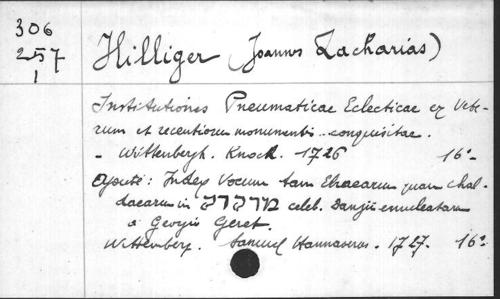 306
257
1
Hilliger (Joannes Zacharias)
Institutiones Pneumaticae Eclecticae ex Vete-
rum et recentiorum monumentis conquisitae.
- Wittenbergh. Knoch. 1726 16º
Ajouté: Index Vocum tam Ebraearum quam Chal-
daearum in celeb. Danzii enucleatarum
a Georgio Geret.
Wittenberg. Samuel Hannaverus. 1727. 16º